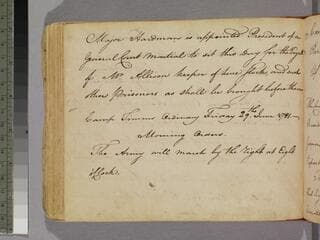 Major Hardman is appointed President of a
General Court Martial to sit this Day for the Tryal
of Mr. Allison keeper of and such
other Prisoners as shall be brought before them
Camp Ordinary Friday 29th June 1781
Morning Orders.
The Army will march by the Right at Eight
oClock.